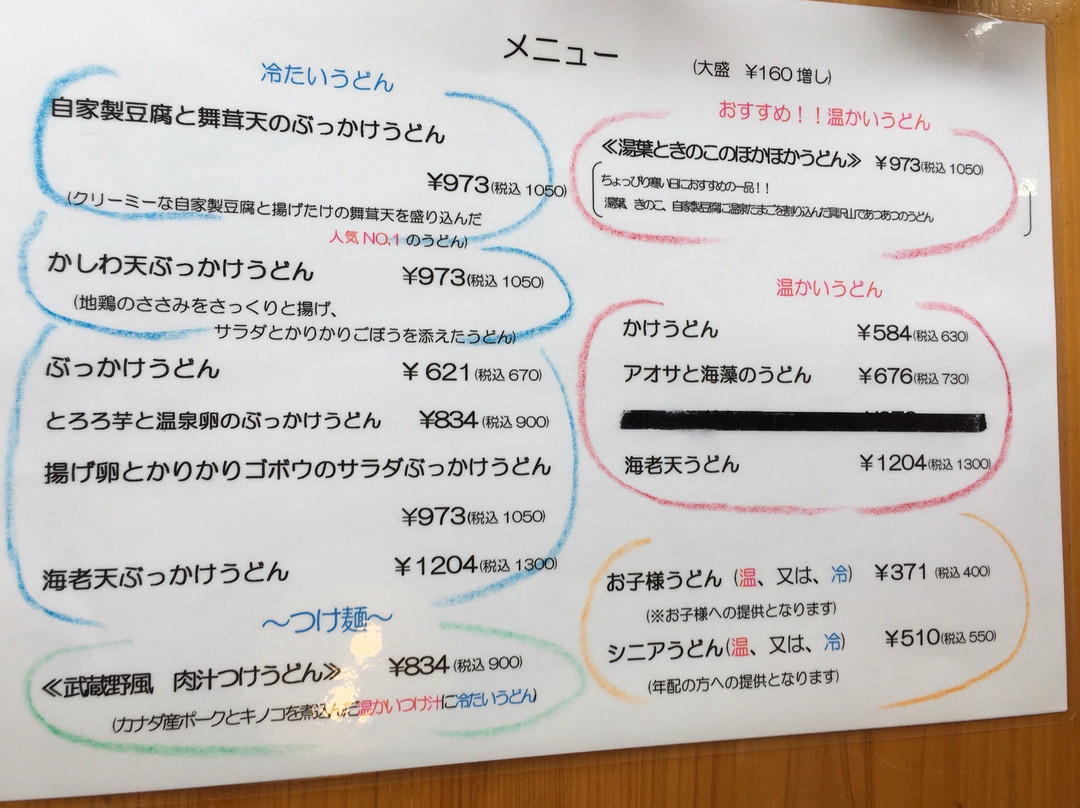 メニュー
(大盛 ¥160増し)
冷たいうどん
自家製豆腐と舞茸天のぶっかけうどん
¥973(税込 1050)
(クリーミーな自家製豆腐と揚げたけの舞茸天を盛り込んだ
人気 NO,1 のうどん)
かしわ天ぶっかけうどん ¥973(税込 1050)
(地鶏のささみをさっくりと揚げ、
サラダとかりかりごぼうを添えたうどん)
ぶっかけうどん ¥621(税込 670)
とろろ芋と温泉卵のぶっかけうどん ¥834(税込 900)
揚げ卵とかりかりゴボウのサラダぶっかけうどん
¥973(税込 1050)
海老天ぶっかけうどん ¥1204(税込 1300)
～つけ麺～
≪武蔵野風 肉汁つけうどん≫ ¥834(税込 900)
(カナダ産ポークとキノコを煮込んだ温かいつけ汁に冷たいうどん)
おすすめ！！温かいうどん
≪湯葉ときのこのほかほかうどん≫ ¥973(税込 1050)
ちょっぴり寒い日におすすめの一品！！
湯葉、きのこ、自家製豆腐に温泉たまごを割り込んだ具沢山であつあつのうどん
温かいうどん
かけうどん ¥584(税込 630)
アオサと海藻のうどん ¥676(税込 730)
海老天うどん ¥1204(税込 1300)
お子様うどん（温、又は、冷） ¥371 (税込 400)
(※お子様への提供となります)
シニアうどん（温、又は、冷） ¥510(税込 550)
(年配の方への提供となります)